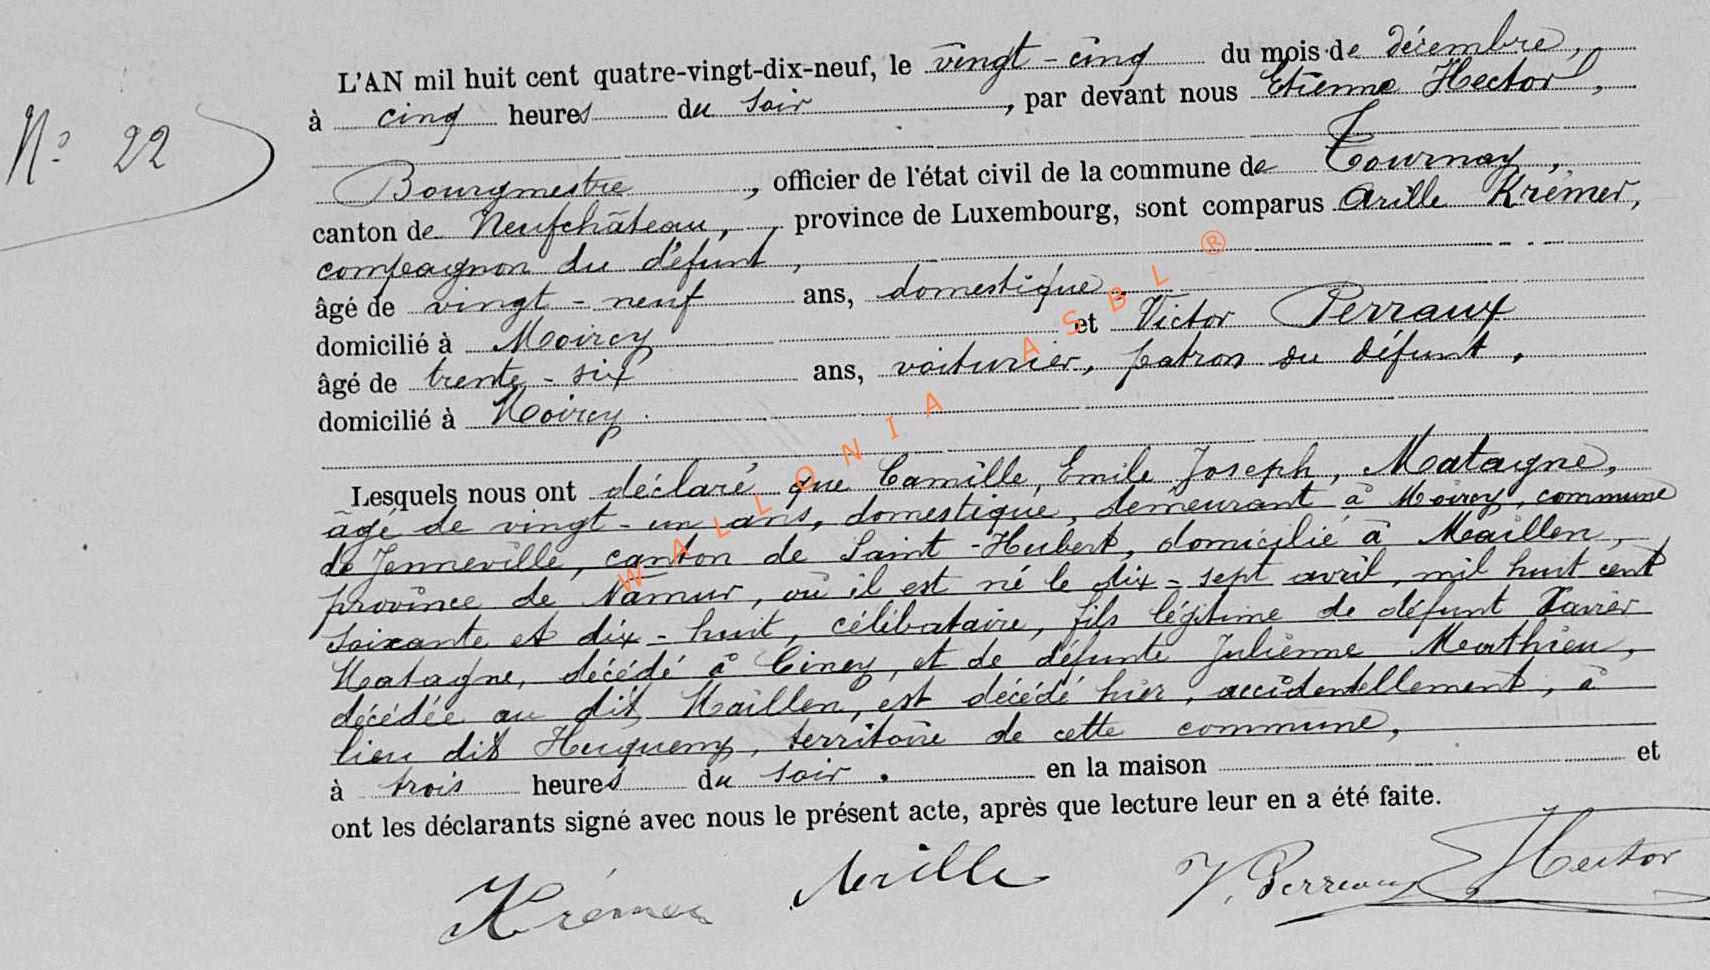 N° 22
L'AN mil huit cent quatre-vingt-dix-neuf, le vingt-cinq du mois de décembre,
à cinq heures du soir, par devant nous Etienne Hector,
Bourgmestre, officier de l'état civil de la commune de Tournay,
canton de Neufchâteau, province de Luxembourg, sont comparus Arille Krémer,
compagnon du défunt,
âgé de vingt-neuf ans, domestique,
domicilié à Moircy et Victor Perraux
âgé de trente-six ans, voiturier, patron du défunt,
domicilié à Moircy.
Lesquels nous ont déclaré que Camille, Emile Joseph, Matagne,
âgé de vingt-un ans, domestique, demeurant à Moircy, commune
de Jenneville, canton de Saint-Hubert, domicilié à Maillen,
province de Namur, où il est né le dix-sept avril, mil huit cent
soixante et dix-huit, célibataire, fils légitime de défunt Xavier
Matagne, décédé à Ciney, et de défunte Julienne Mathieu,
décédée au dit Maillen, est décédé hier, accidentellement, à
lieu dit, territoire de cette commune,
à trois heures du soir. en la maison et
ont les déclarants signé avec nous le présent acte, après que lecture leur en a été faite.
Krémer Arille V. Perraux Hector
WALLONIA ASBL ®